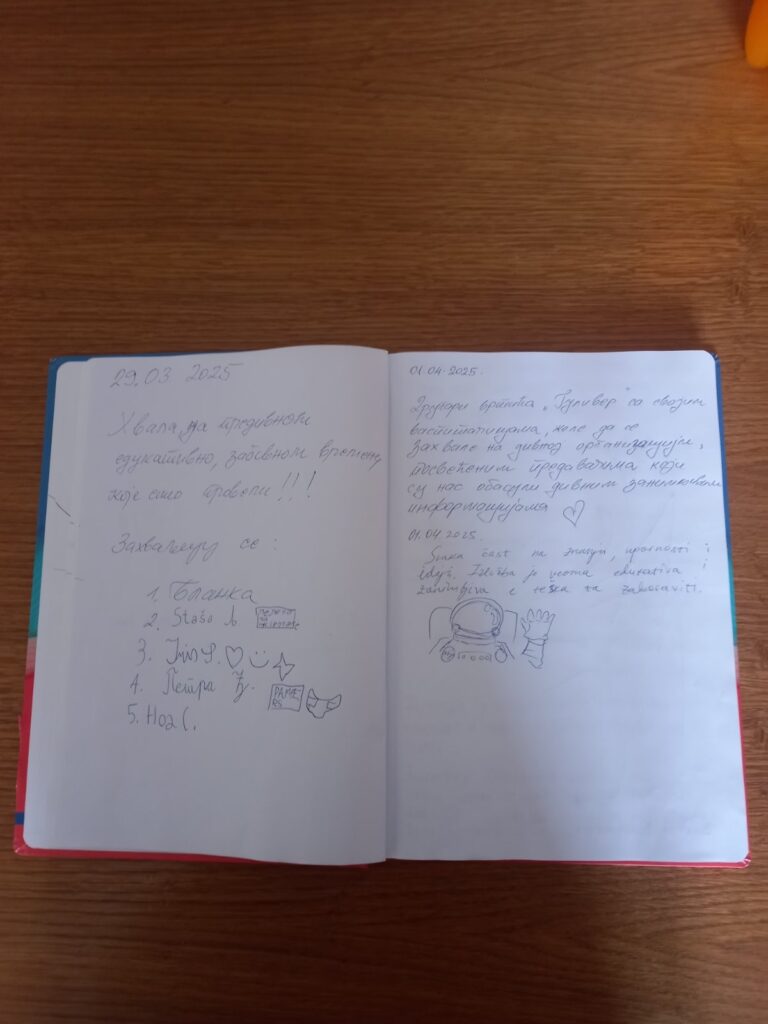 29.03. 2025
Хвала на предивном
едукативно, забавном времену,
које смо провели!!!
Захваљују се:
1. Бланка
2. Staša
3.
4. Петра Ђ.
PAMPE
RS
5.
01.04.2025.
Другари вртића „Гуливер" са својим
васпитачицама, желе да се
захвале на дивној организацији,
посвећеним предавачима који
су нас обасули дивним занимљивим
информацијама
01.04.2025.
Svaka čast na znanju, upornosti i
ideji. Izložba je veoma edukativa i
zanimljiva i teška za zaboraviti.